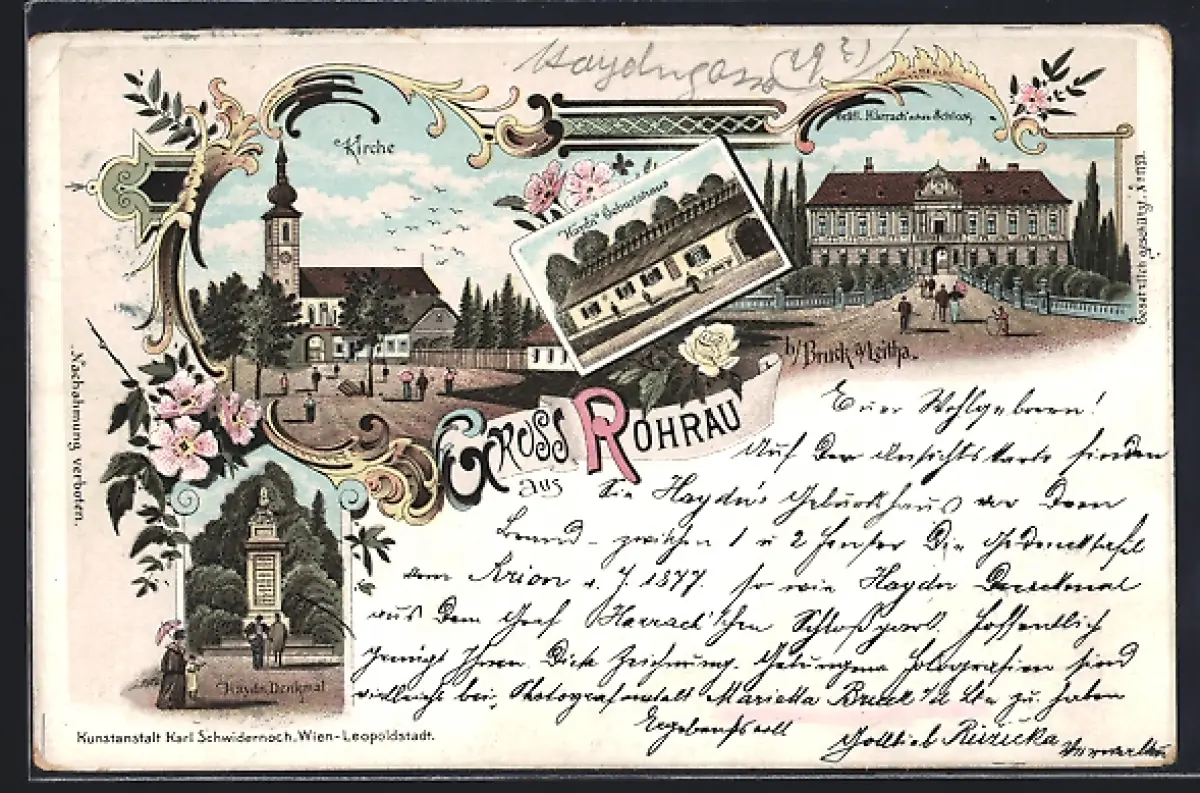 Haydngasse
Kirche
Gräfl. Harrach'sches Schloss
Haydn's Geburtshaus
Gesetzlich geschützt
b/ Bruck a/Leitha.
Gruss
aus
Rohrau
Nachahmung verboten.
Haydn Denkmal
Kunstanstalt Karl Schwidernoch, Wien-Leopoldstadt.
Euer Wohlgeboren!
Auf der Ansichtskarte finden
Sie Haydn's Geburtshaus vor dem
Brand - zwischen 1 u 2 Fenster die Gedenktafel
vom Arion a. J 1877. so wie Haydn Denkmal
aus dem Graf Harrach'schen Schloßpark. Hoffentlich
genügt Ihnen diese Zeichnung. Gelungene Fotografien sind
vielleicht bei Photografanstalt Marietta Bruck a/d Lta zu haben
Ergebenst
Gottlieb Ruzicka
Verwalter